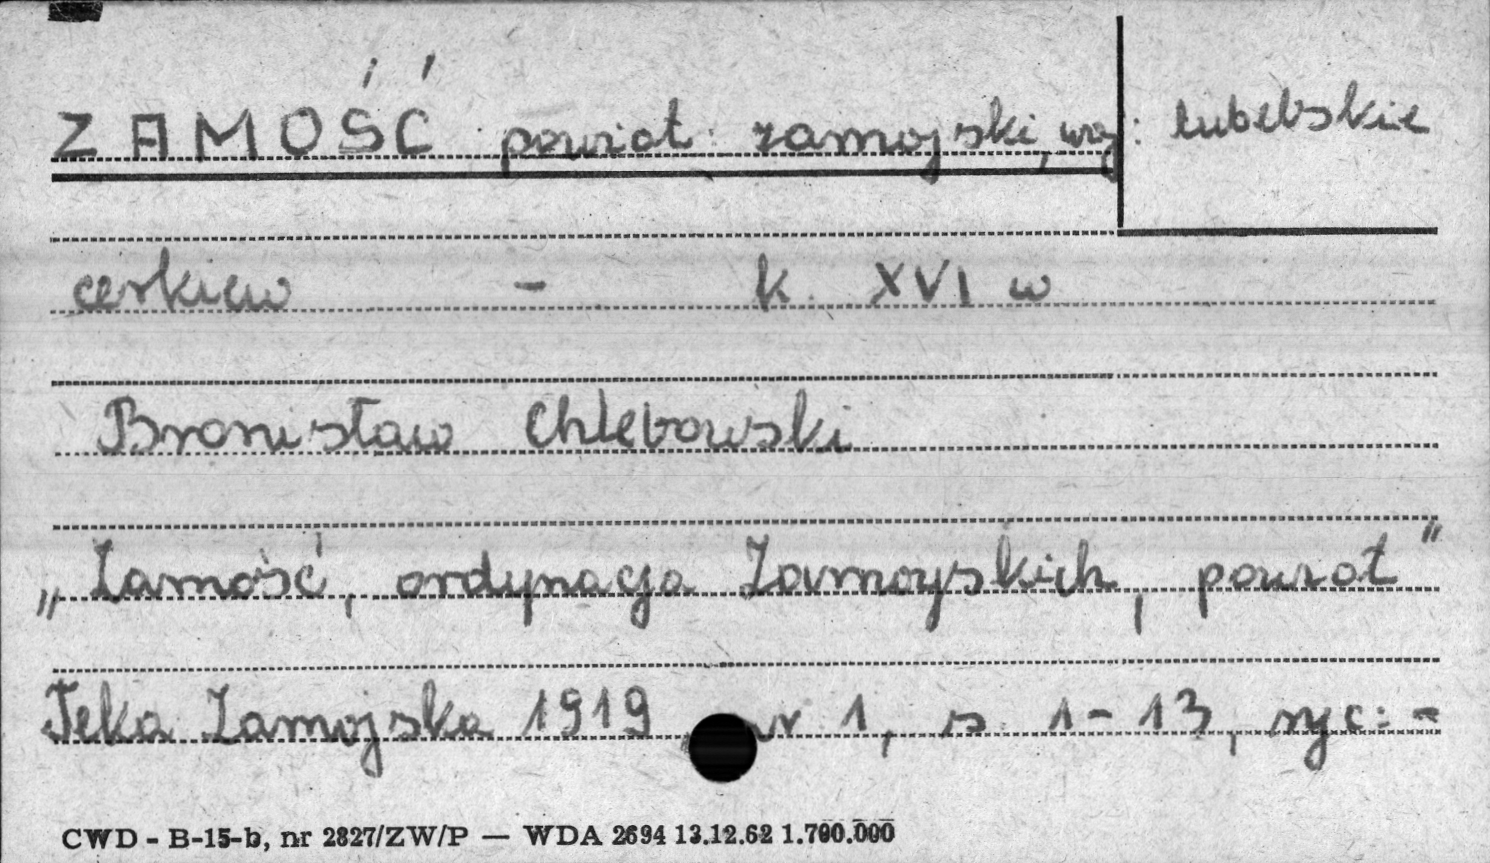 ZAMOŚĆ powiat: zamojski, woj: lubelskie
cerkiew - k. XVI w
Bronisław Chlebowski
„Zamość, ordynacja Zamoyskich, powiat"
Teka Zamojska 1919, nr 1, s. 1-13, ryc: -
CWD - B-15-b, nr 2827/ZW/P — WDA 2694 13.12.62 1.700.000